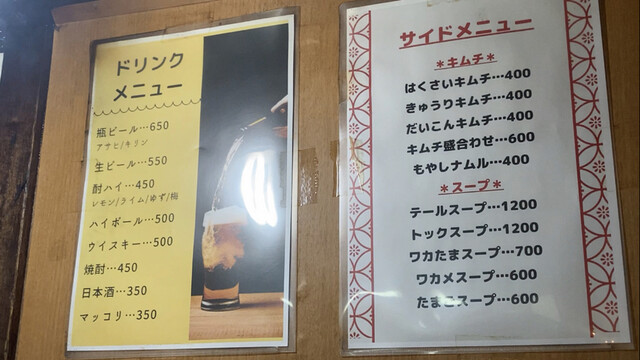 ドリンク
メニュー
瓶ビール…650
アサヒ/キリン
生ビール…550
酎ハイ…450
レモン/ライム/ゆず/梅
ハイボール…500
ウイスキー…500
焼酎…450
日本酒…350
マッコリ…350
サイドメニュー
＊キムチ＊
はくさいキムチ…400
きゅうりキムチ…400
だいこんキムチ…400
キムチ盛合わせ…600
もやしナムル…400
＊スープ＊
テールスープ…1200
トックスープ…1200
ワカたまスープ…700
ワカメスープ…600
たまごスープ…600